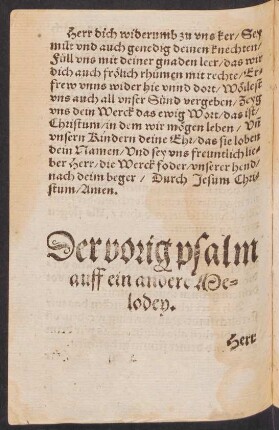 Herr dich widerumb zu vns ker/ Sey
milt vnd auch genedig deinen knechten/
Füll vns mit deiner gnaden leer/ das wir
dich auch frölich rhümen mit rechte/ Er-
frew vnns wider hie vnnd dort/ Wöllest
vns auch all vnser Sünd vergeben/ Zeyg
vns dein Werck das ewig Wort/ das ist/
Christum/ in dem wir mögen leben/ Vñ
vnsern Kindern deine Ehr/ das sie loben
dein Namen/ Vnd sey vns freuntlich lie-
ber Herr/ die Werck foder/ vnserer hend/
nach deim beger/ Durch Jesum Chri-
stum/ Amen.
Der vorig psalm
auff ein andere Me-
lodey.
Herr